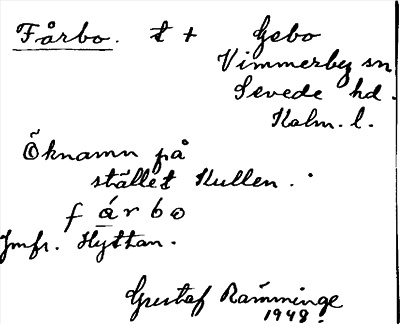 Fårbo. t + Gebo
Vimmerby sn
Sevede hd.
Kalm. l.
Öknamn på
stället Kullen.
fárbo
Jmfr. Hyttan.
Gustaf Ramminge
1948.